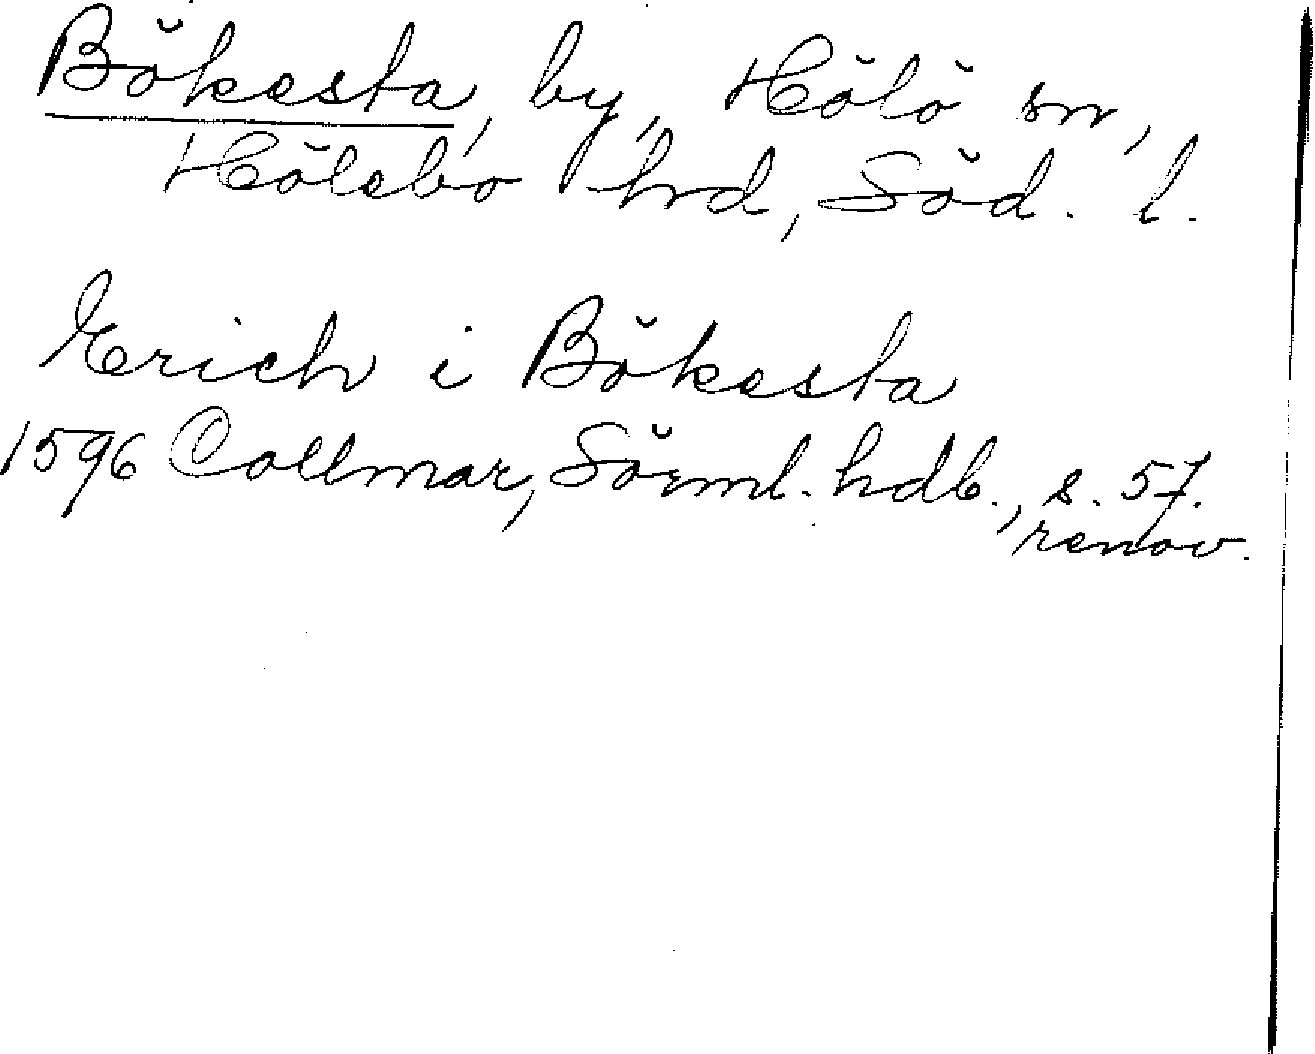 Bökesta, by, Hölö sn,
Hölebo hrd, Söd. l.
Erich i Bökesta
1596 Collmar, Sörml. hdl., s. 57.
renov.